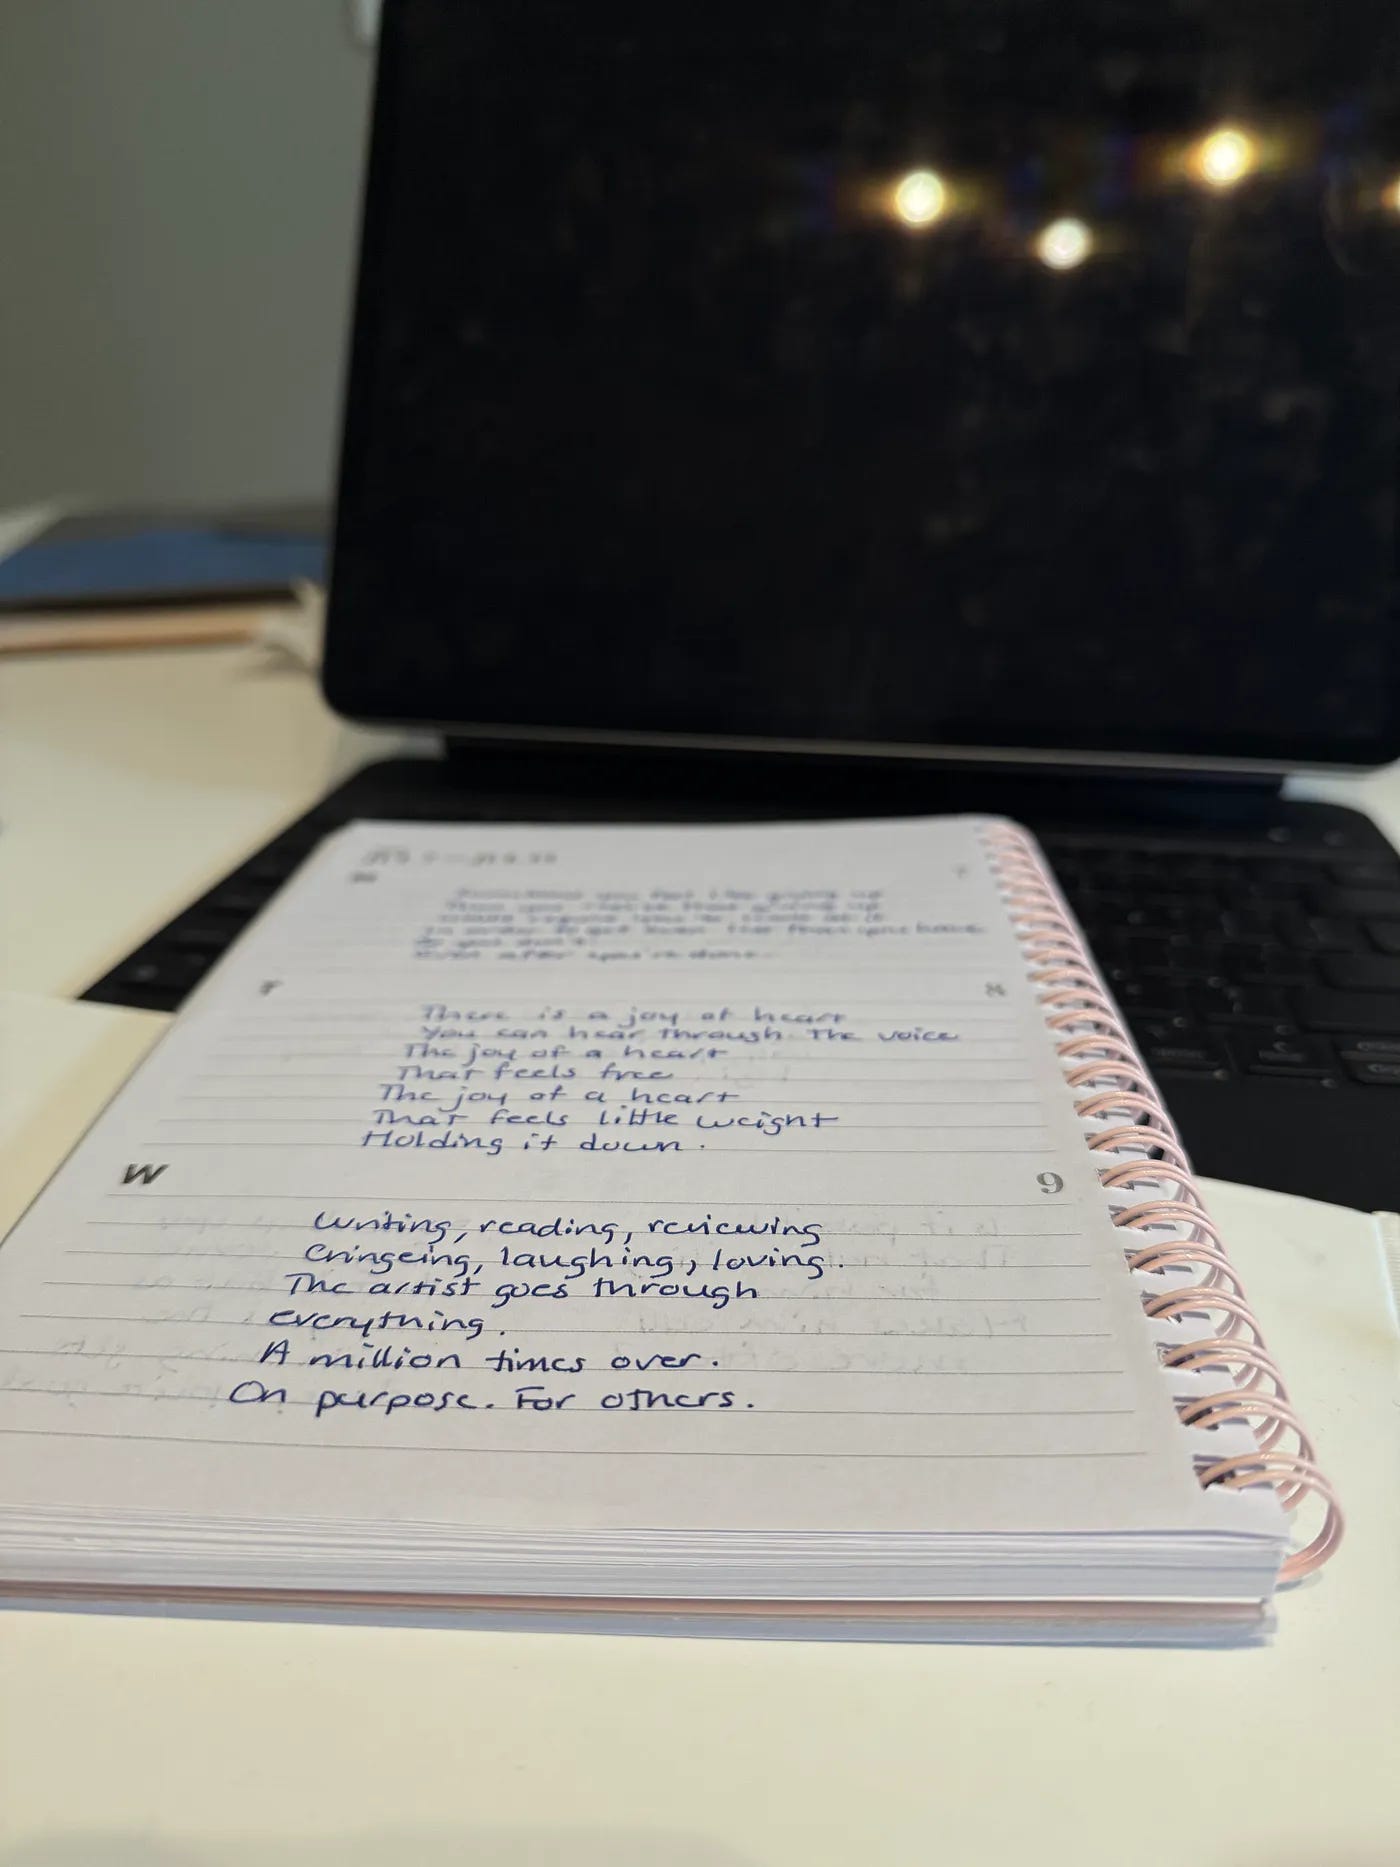 you feel like giving up
giving up
in order to get even the
Even after you're done.
T 8
There is a joy of heart
You can hear through the voice
The joy of a heart
That feels free
The joy of a heart
That feels little weight
Holding it down.
W 9
Writing, reading, reviewing
Cringeing, laughing, loving.
The artist goes through
everything.
A million times over.
On purpose. For others.